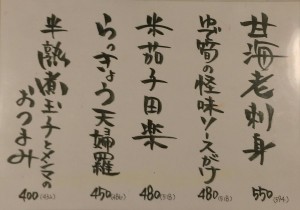 甘海老刺身
550(594)
ゆで筍の怪味ソースがけ
480(518)
米茄子田楽
480(518)
らっきょう天婦羅
450(486)
半熟煮玉子とメンマの
おつまみ
400(432)